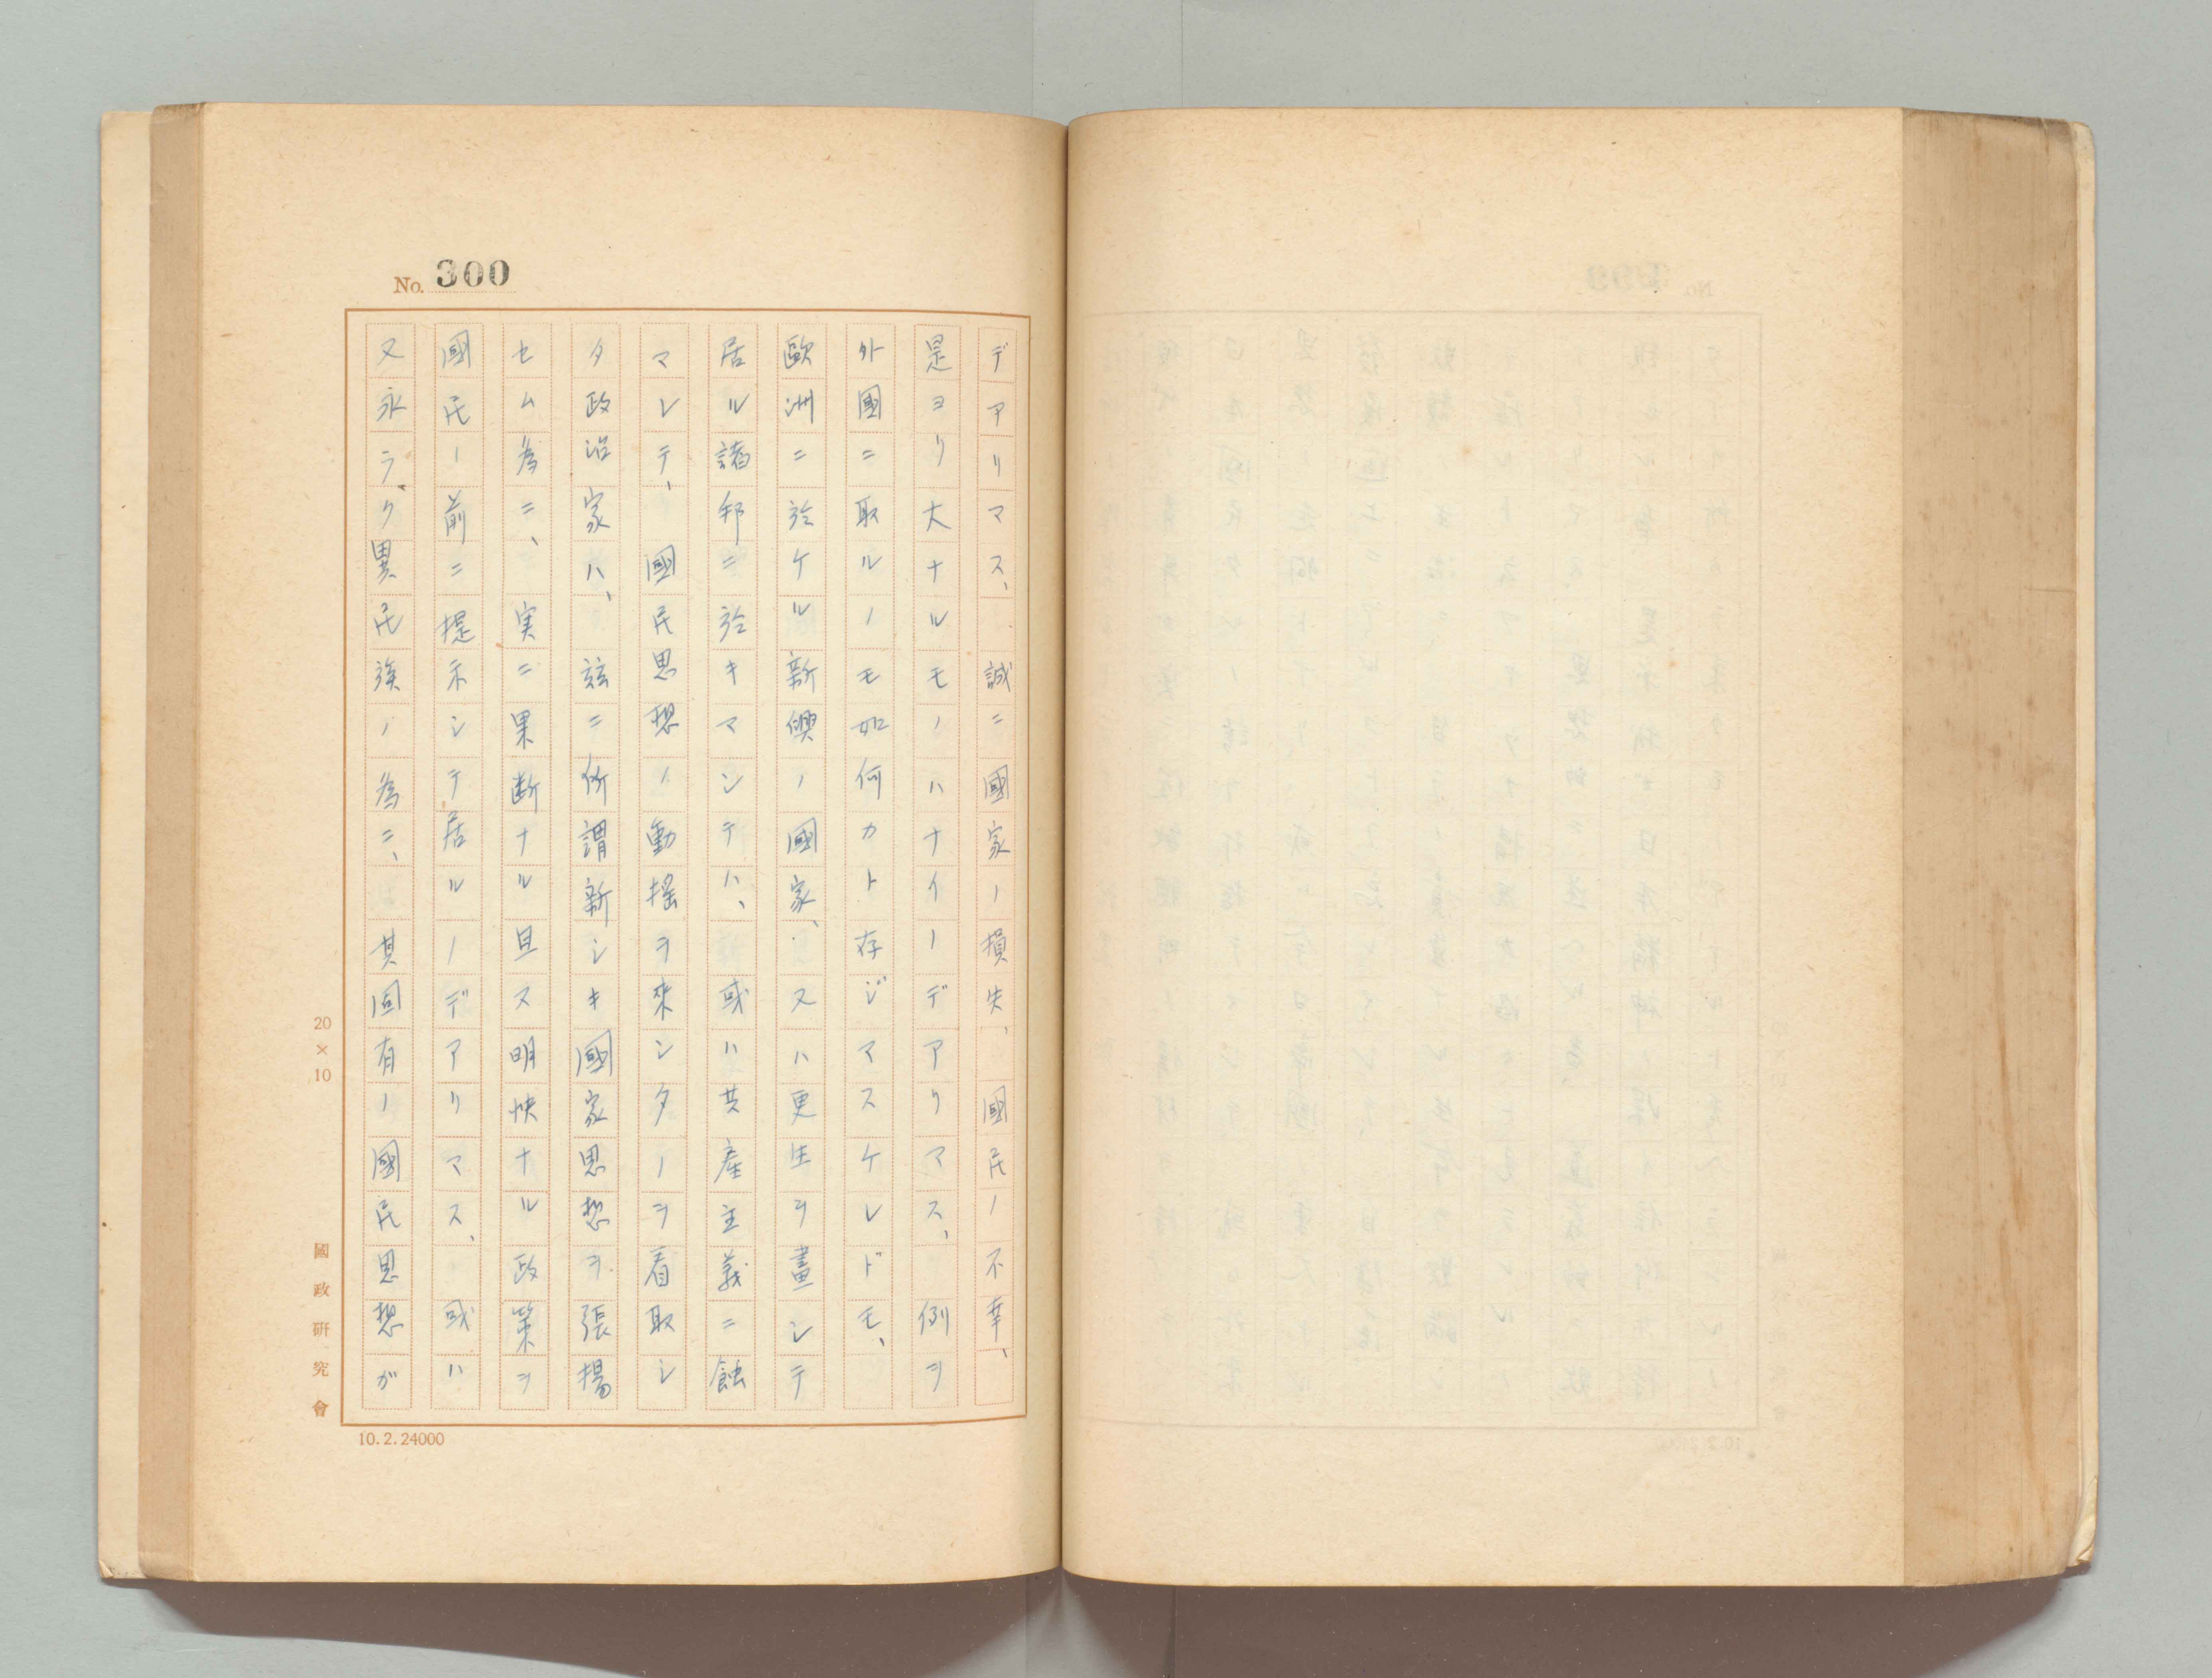 No. 300
デアリマス、誠ニ國家ノ損失、國民ノ不幸、
是ヨリ大ナルモノハナイノデアリマス、例ヲ
外國ニ取ルノモ如何カト存ジマスケレドモ、
歐洲ニ於ケル新興ノ國家、又ハ更生ヲ畫シテ
居ル諸邦ニ於キマシテハ、或ハ共産主義ニ蝕
マレテ、國民思想ノ動搖ヲ來シタノヲ看取シ
タ政治家ハ、玆ニ所謂新シキ國家思想ヲ張揚
セム為ニ、実ニ果断ナル且ス明快ナル政策ヲ
國民ノ前ニ提示シテ居ルノデアリマス、或ハ
又永ラク異民族ノ為ニ、其固有ノ國民思想ガ
20×10
國政研究會
10.2.24000